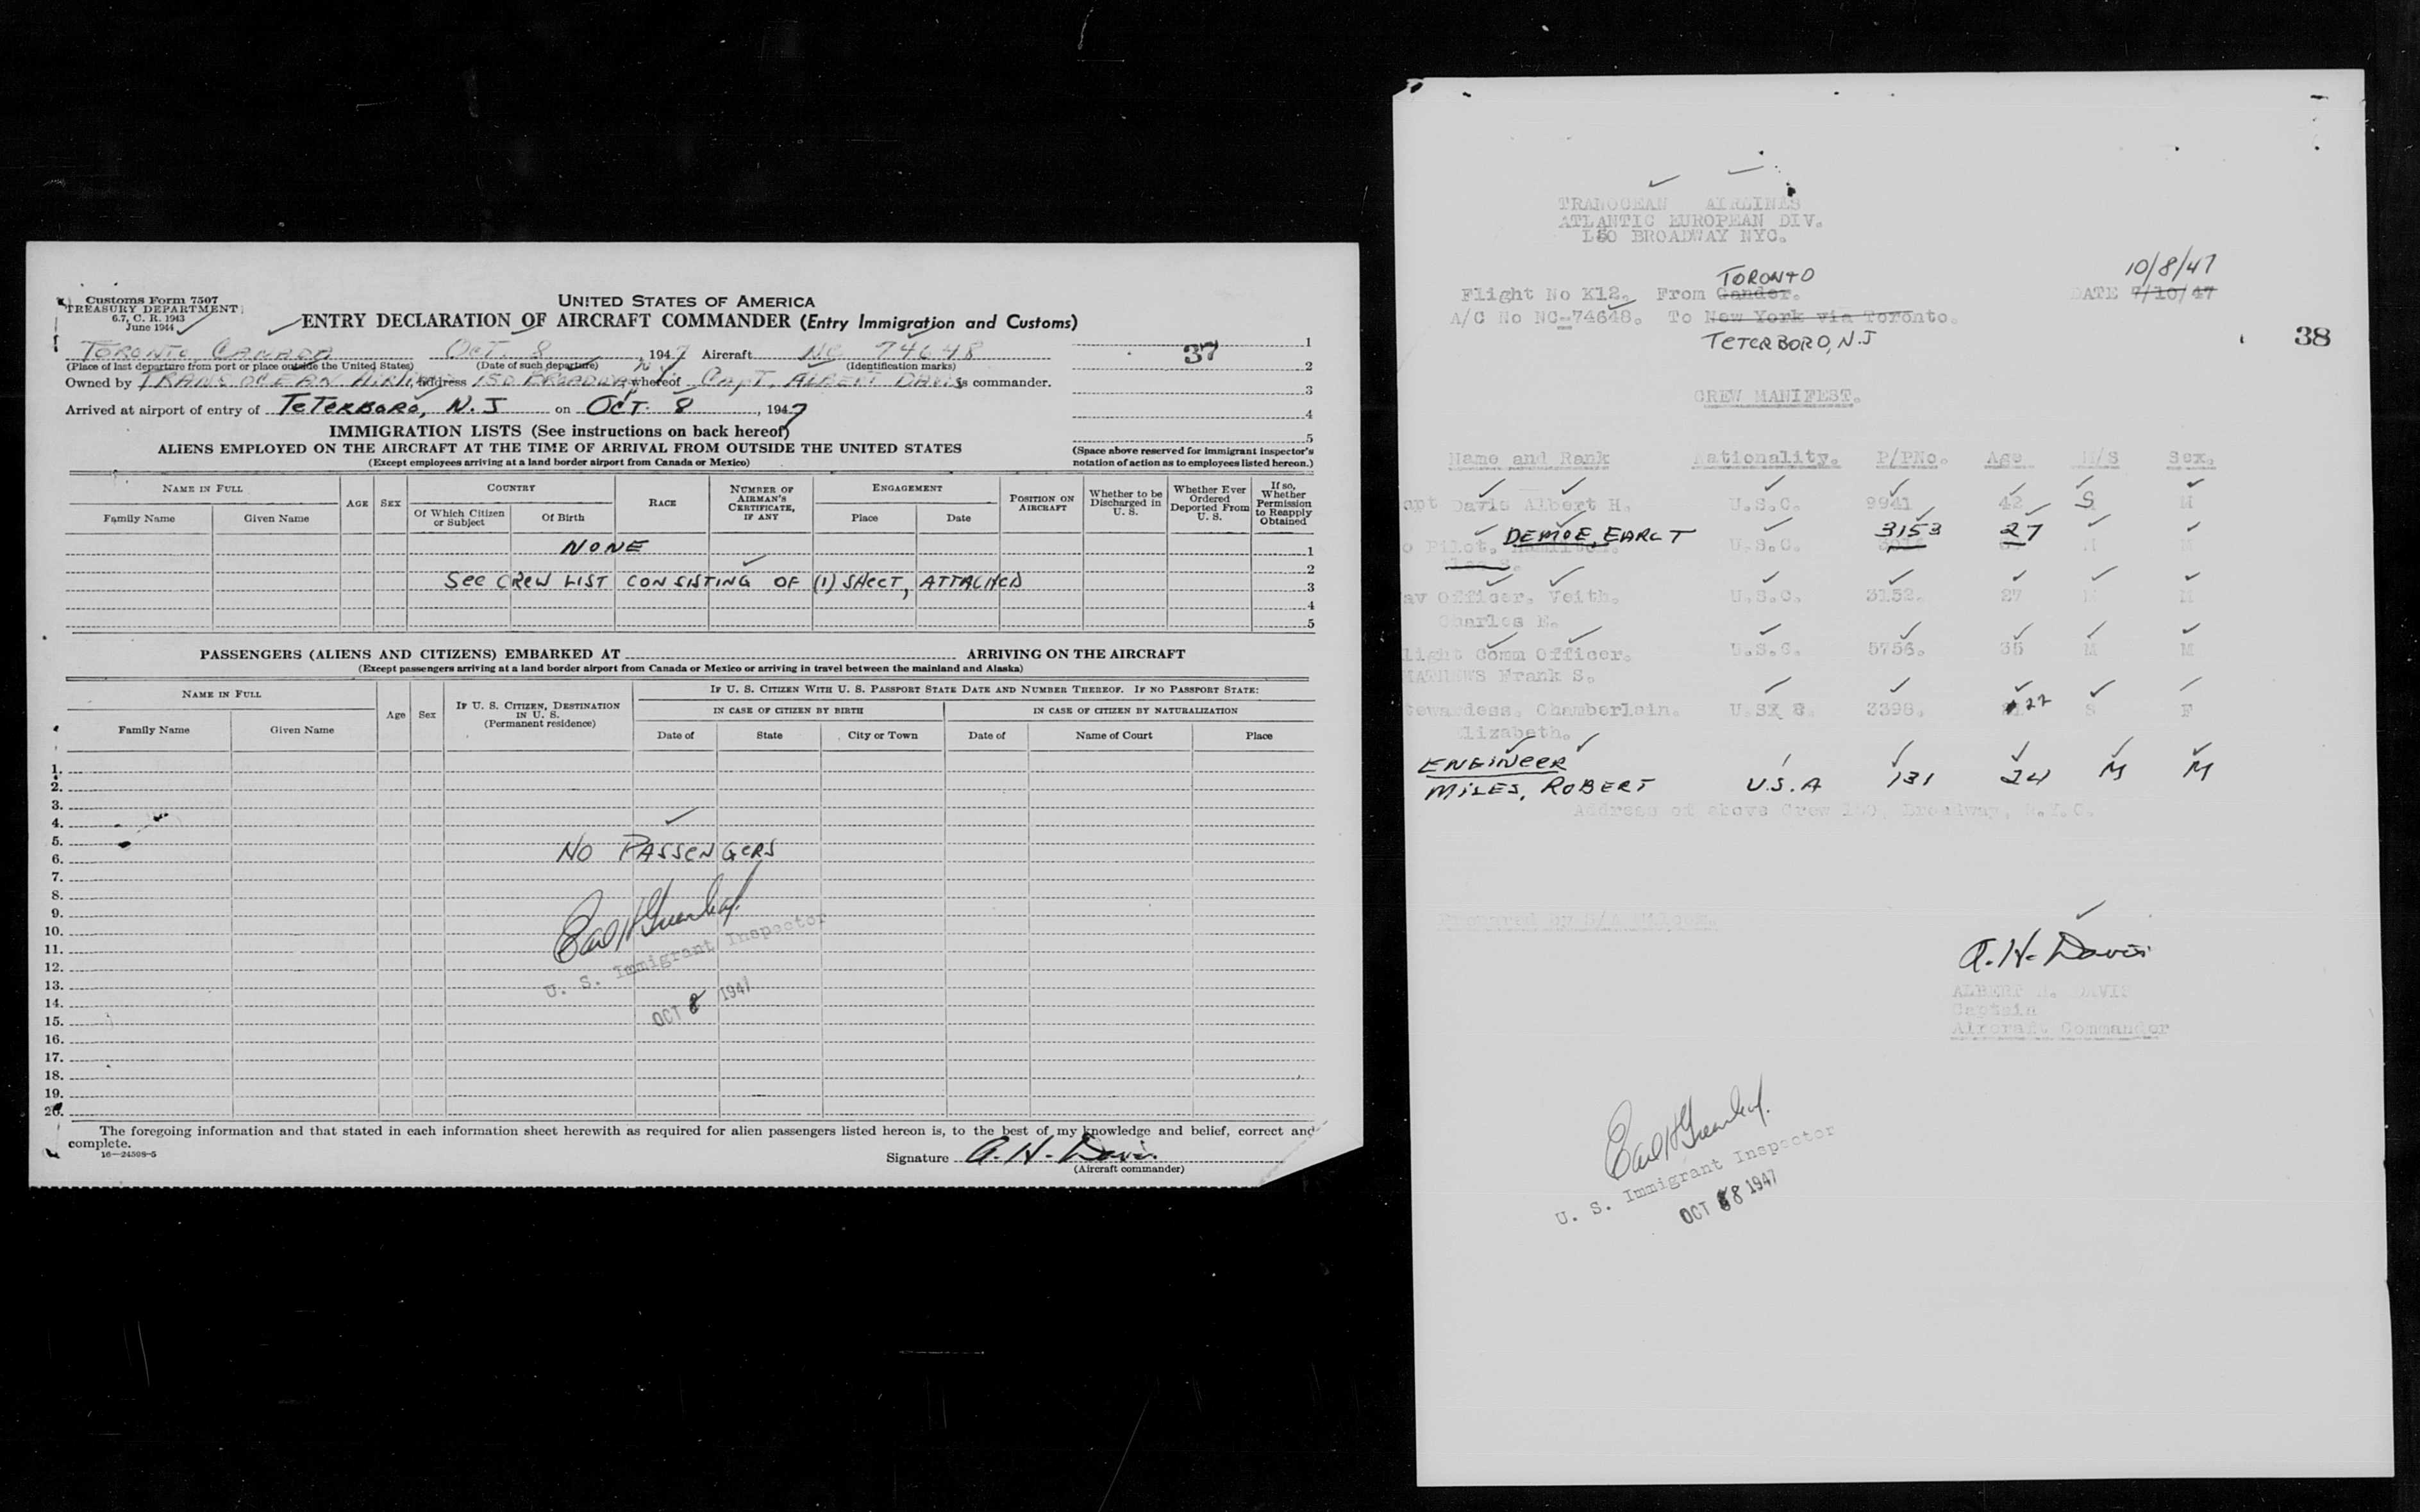 Customs Form 7507
TREASURY DEPARTMENT
6.7, C. R. 1943
June 1944
UNITED STATES OF AMERICA
ENTRY DECLARATION OF AIRCRAFT COMMANDER (Entry Immigration and Customs)
TORONTO, CANADA OCT. 8, 1947 Aircraft NC 74648
(Place of last departure from port or place outside the United States) (Date of such departure) (Identification marks)
Owned by TRANSOCEAN AIRLINES, address 150 BROADWAY N.Y., whereof CAPT. ALBERT DAVIS is commander.
Arrived at airport of entry of TETERBORO, N.J on OCT. 8, 1947
37
1
2
3
4
5
(Space above reserved for immigrant inspector's notation of action as to employees listed hereon.)
IMMIGRATION LISTS (See instructions on back hereof)
ALIENS EMPLOYED ON THE AIRCRAFT AT THE TIME OF ARRIVAL FROM OUTSIDE THE UNITED STATES
(Except employees arriving at a land border airport from Canada or Mexico)
NAME IN FULL AGE SEX COUNTRY RACE NUMBER OF AIRMAN'S CERTIFICATE, IF ANY ENGAGEMENT POSITION ON AIRCRAFT Whether to be Discharged in U. S. Whether Ever Ordered Deported From U. S. If so, Whether Permission to Reapply Obtained
Family Name Given Name Of Which Citizen or Subject Of Birth Place Date
NONE 1
2
SEE CREW LIST CONSISTING OF (1) SHEET, ATTACHED 3
4
5
PASSENGERS (ALIENS AND CITIZENS) EMBARKED AT ARRIVING ON THE AIRCRAFT
(Except passengers arriving at a land border airport from Canada or Mexico or arriving in travel between the mainland and Alaska)
NAME IN FULL Age Sex IF U. S. CITIZEN, DESTINATION IN U. S. (Permanent residence) IF U. S. CITIZEN WITH U. S. PASSPORT STATE DATE AND NUMBER THEREOF. IF NO PASSPORT STATE:
IN CASE OF CITIZEN BY BIRTH IN CASE OF CITIZEN BY NATURALIZATION
Family Name Given Name Date of State City or Town Date of Name of Court Place
1.
2.
3.
4.
5.
NO PASSENGERS
6.
7.
8.
9.
10.
11.
12.
13.
14.
15.
16.
17.
18.
19.
20.
U. S. Immigrant Inspector
OCT 8 1947
The foregoing information and that stated in each information sheet herewith as required for alien passengers listed hereon is, to the best of my knowledge and belief, correct and complete.
16—24598-5
Signature A. H. Davis
(Aircraft commander)
TRANOCEAN AIRLINES
ATLANTIC EUROPEAN DIV.
150 BROADWAY NYC.
TORONTO 10/8/47
Flight No K12. From Gander. DATE 7/10/47
A/C No NC-74648. To New York via Toronto.
TETERBORO, N.J
38
CREW MANIFEST.
Name and Rank Nationality. P/PNo. Age M/S Sex.
apt Davis Albert H. U.S.C. 9941 42 S M
o Pilot. DEMOE, EARL T U.S.C. 3153 27 M M
av Officer, Veith. U.S.C. 3152. 27 M M
Charles E.
light Comm Officer. U.S.C. 5756. 35 M M
MATHEWS Frank S.
tewardess. Chamberlain. U.S. 3398. 22 S F
Elizabeth.
ENGINEER
MILES, ROBERT U.S.A 131 24 M M
Address of above Crew 150, Broadway, N.Y.C.
Prepared by
A. H. Davis
ALBERT H. DAVIS
Captain
Aircraft Commander
U. S. Immigrant Inspector
OCT 8 1947